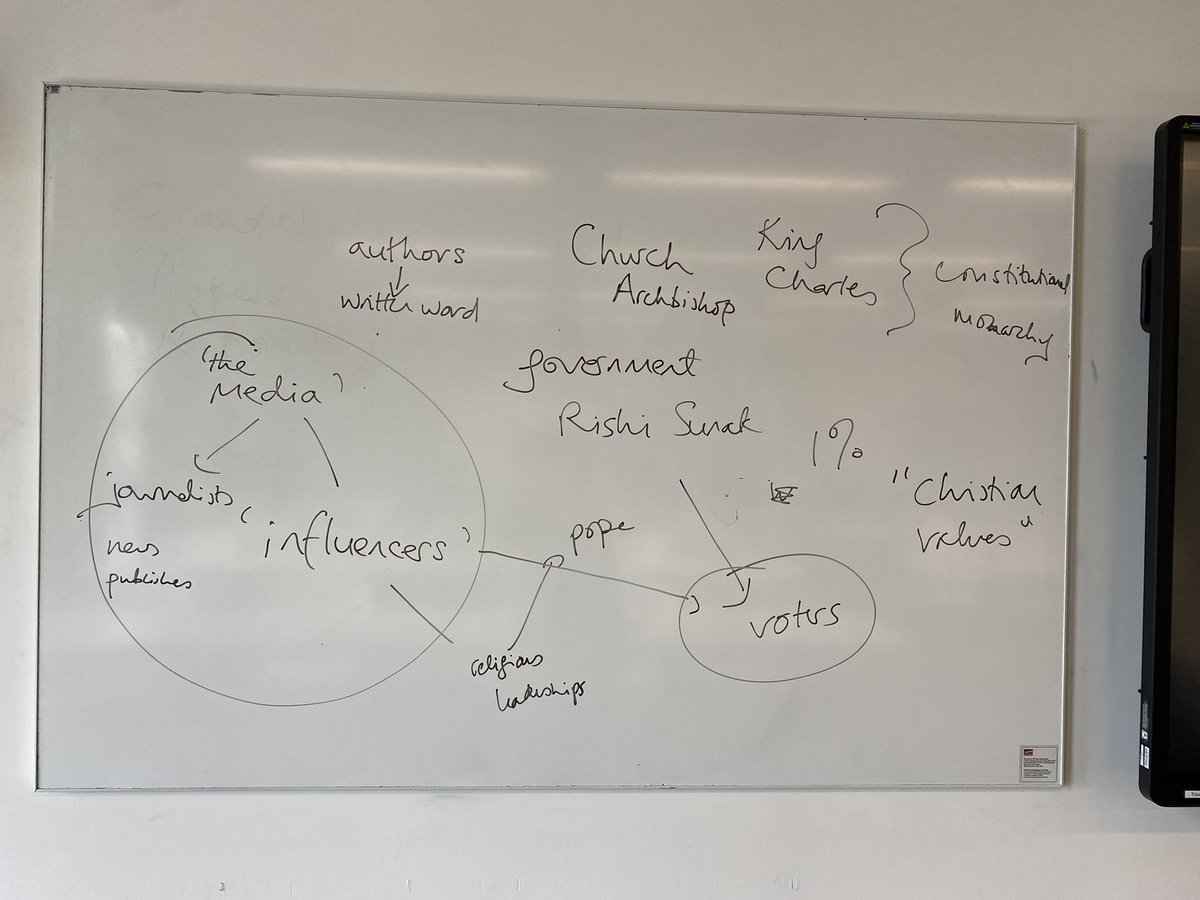 authors
written word
Church
Archbishop
King
Charles
constitutional
monarchy
'the
Media'
government
Rishi Sunak
1%
"Christian
values"
journalists
news
publishes
'influencers'
pope
voters
religious
leaderships